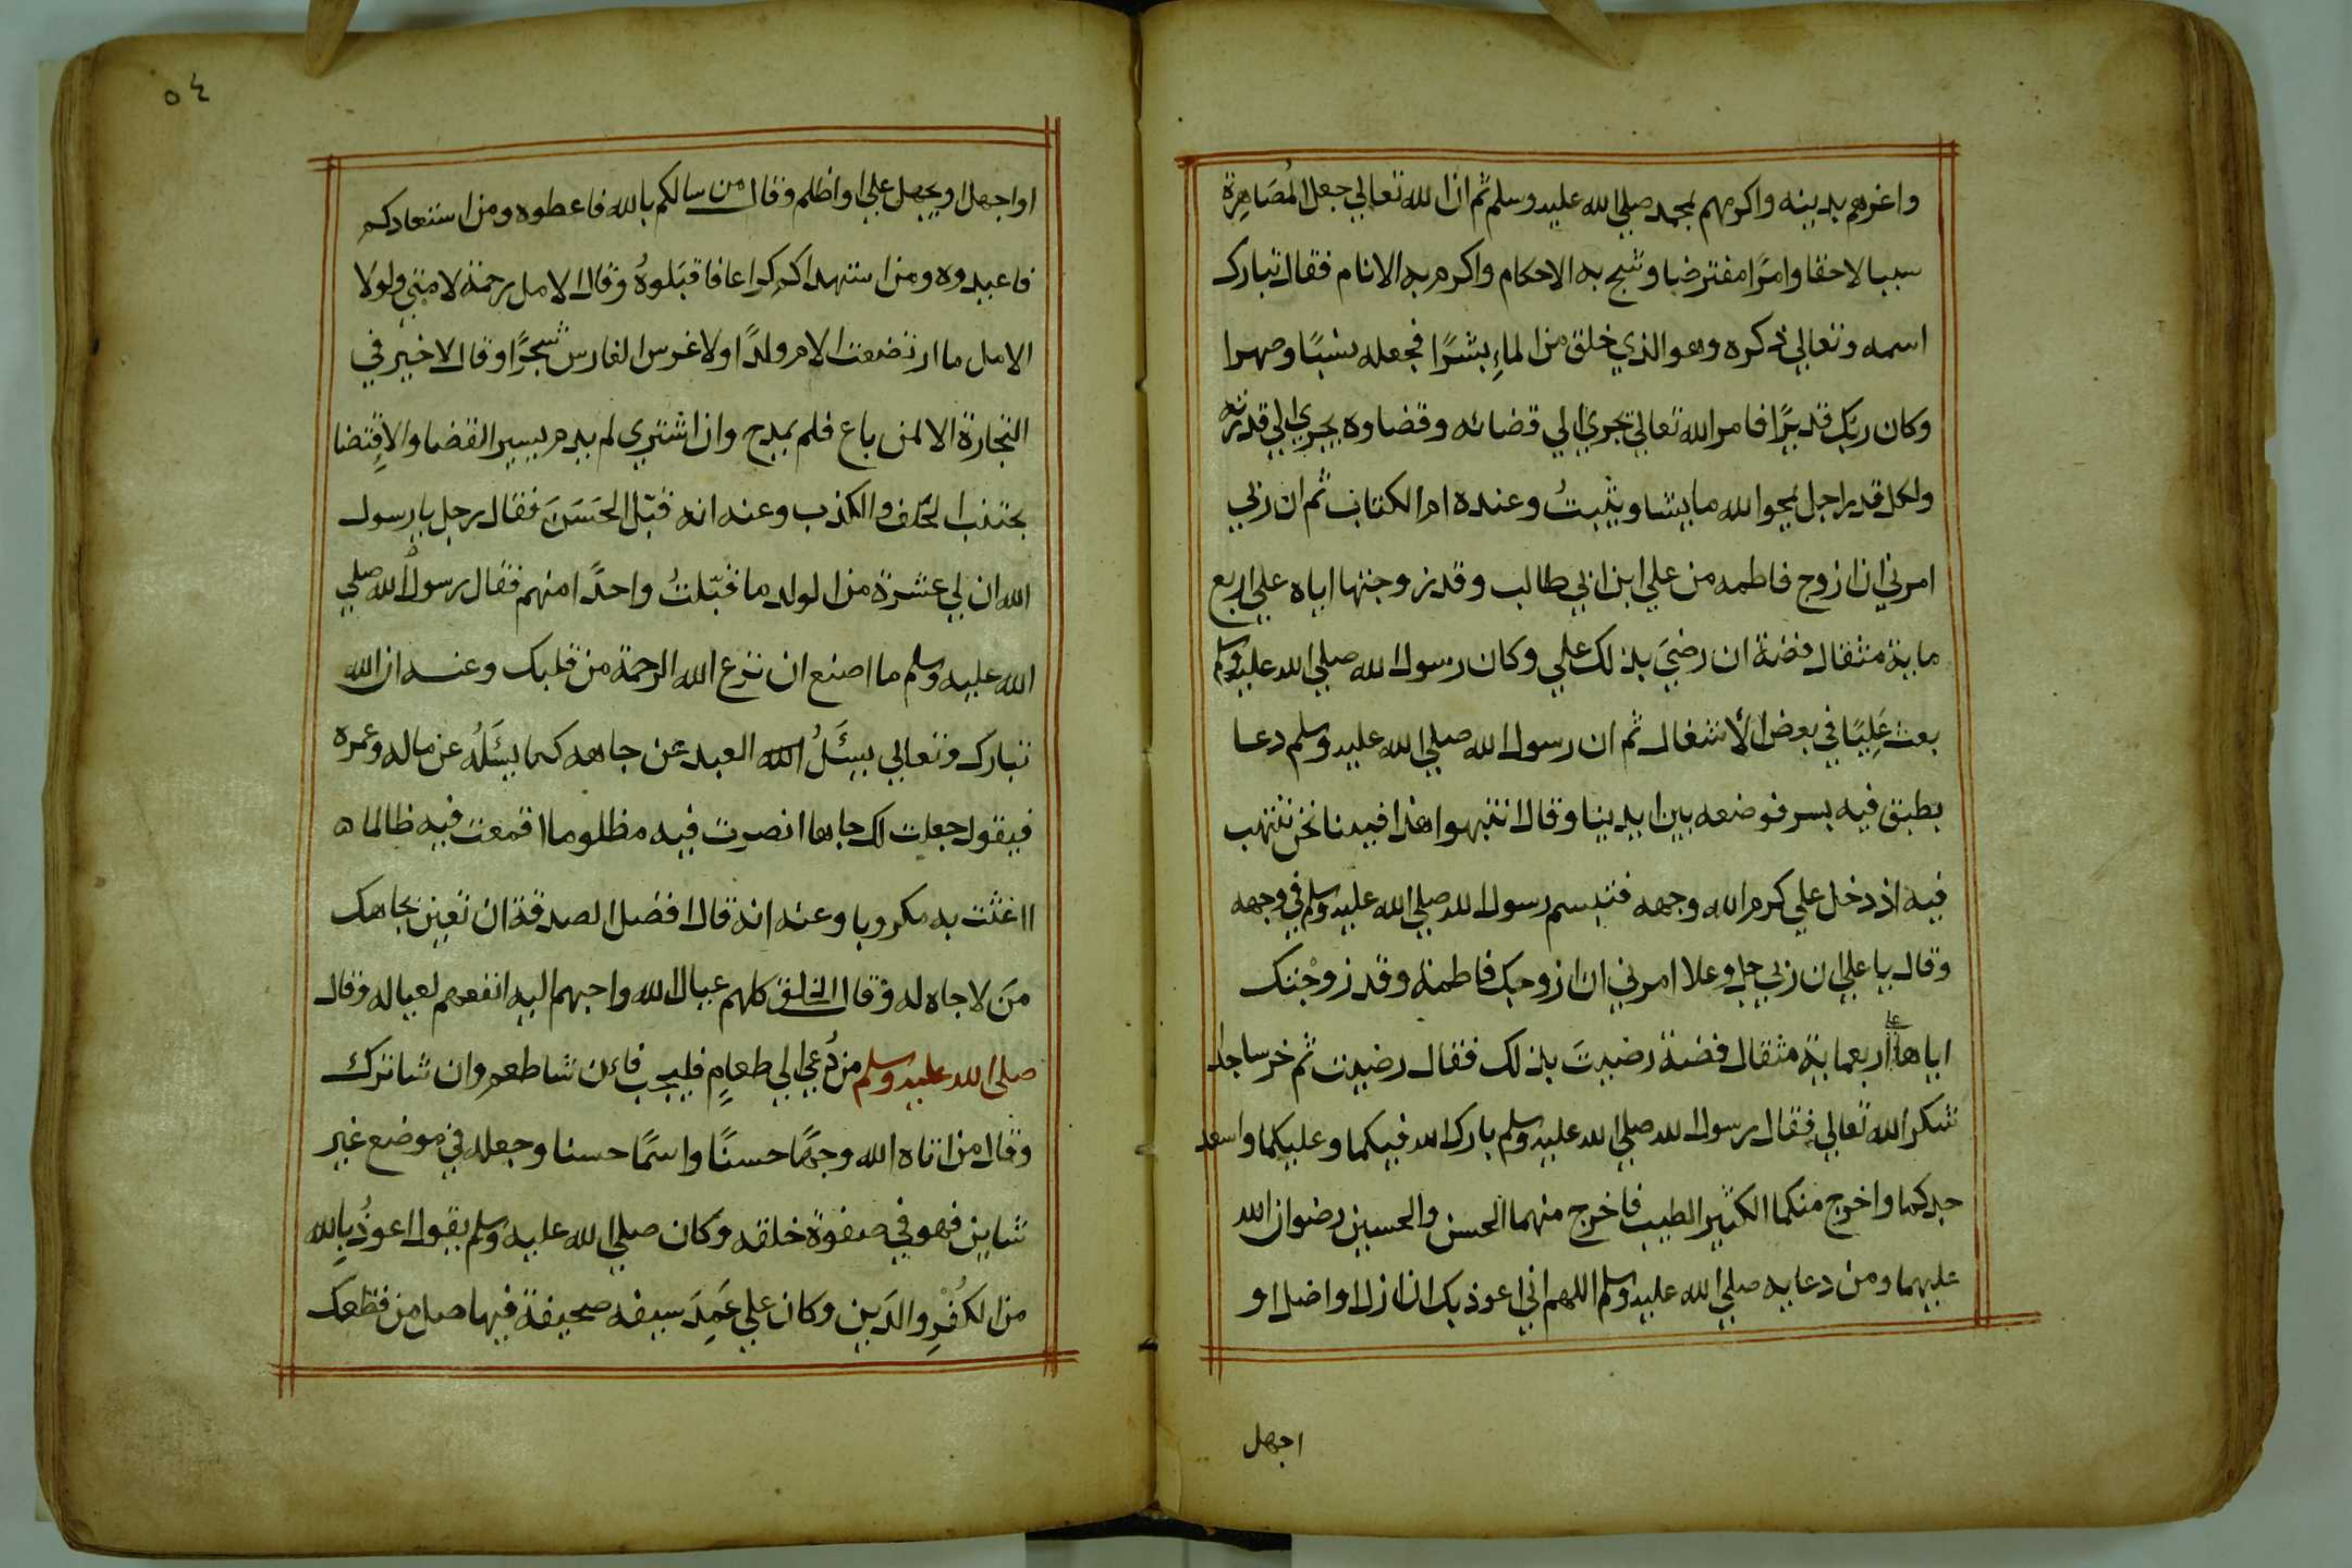 واعزهم بدينه واكرمهم بمحمد صلي الله عليه وسلم ثم ان الله تعالي جعل المُصَاهِرة
سببا لاحقا وامرًا مفترضا وشج به الاحكام واكرم به الانام فقال تبارك
اسمه وتعالي ذكره وهو الذي خلق من الماءِ بشرًا فجعله نسبًا وصهرا
وكان ربك قديرًا فامر الله تعالي تجري الي قضائه وقضاوه يجري الي قدرته
ولكل قدير اجل يمحوا الله ما يشا ويثبتُ وعنده ام الكتاب ثم ان ربي
امرني ان ازوج فاطمه من علي ابن ابي طالب وقد زوجتها اياه علي اربع
ماية مثقال فضة ان رضيَ بذلك علي وكان رسول الله صلي الله عليه وسلم
بعث عَلِيًا في بعض الأشغال ثم ان رسول الله صلي الله عليه وسلم دعا
بطبق فيه بسر فوضعه بين ايدينا وقال انتهبوا هذا فبينا نحن ننتهب
فيه اذ دخل علي كرم الله وجهه فتبسم رسول الله صلي الله عليه وسلم في وجهه
وقال يا علي ان ربي جل وعلا امرني ان ازوجك فاطمة وقد زوجتك
اياها علي اربعماية مثقال فضة رضيتَ بذلك فقال رضيت ثم خر ساجدا
شكر الله تعالي فقال رسول الله صلي الله عليه وسلم بارك الله فيكما وعليكما واسعد
جدكما واخرج منكما الكثير الطيب فاخرج منهما الحسن والحسين رضوان الله
عليهما ومن دعايه صلي الله عليه وسلم اللهم اني اعوذ بك ان ازل او اضل او
اجهل
٥٤
او اجهل او يجهل علي او اظلم وقال من سالكم بالله فاعطوه ومن استعادكم
فاعيدوه ومن استهداكم كراعا فاقبَلوهُ وقال الامل رحمة لامتي ولولا
الامل ما ارتضعت الام ولدًا ولا غرس الفارس شجرًا وقال لا خير في
التجارة الا لمن باع فلم يمدح وان اشتري لم يدم يسير القضا والاقِتضا
يجتنب الحَلف والكذب وعنه انه قبّل الحَسَنَ فقال رجل يا رسول
الله ان لي عشرة من الولد ما قبّلتُ واحدًا منهم فقال رسولُ الله صلي
الله عليه وسلم ما اصنع ان نزع الله الرحمة من قلبك وعنه ان الله
تبارك وتعالي يسئَلُ الله العبد عن جاهه كما يسئَلهُ عن ماله وعمره
فيقول جعلت لك جاها انصرت فيه مظلوما اقمعت فيه ظالما ه
ااغثت به مكروبا وعنه انه قال افضل الصدقة ان تعين بجاهك
منَ لا جاه له وقال الخلق كلهم عيال الله واحبهم اليه انفعهم لعياله وقال
صلي الله عليه وسلم من دُعي الي طعامٍ فليجب فاءن شا طعم وان شا ترك
وقال من اتاه الله وجهًا حسنًا واسمًا حسنا وجعله في موضع غير
شاين فهو في صفوة خلقه وكان صلي الله عليه وسلم يقول اعوذُ بالله
من الكُفْرِ والدَين وكان علي غَمِدَ سيفه صحيفة فيها صل من قطعك